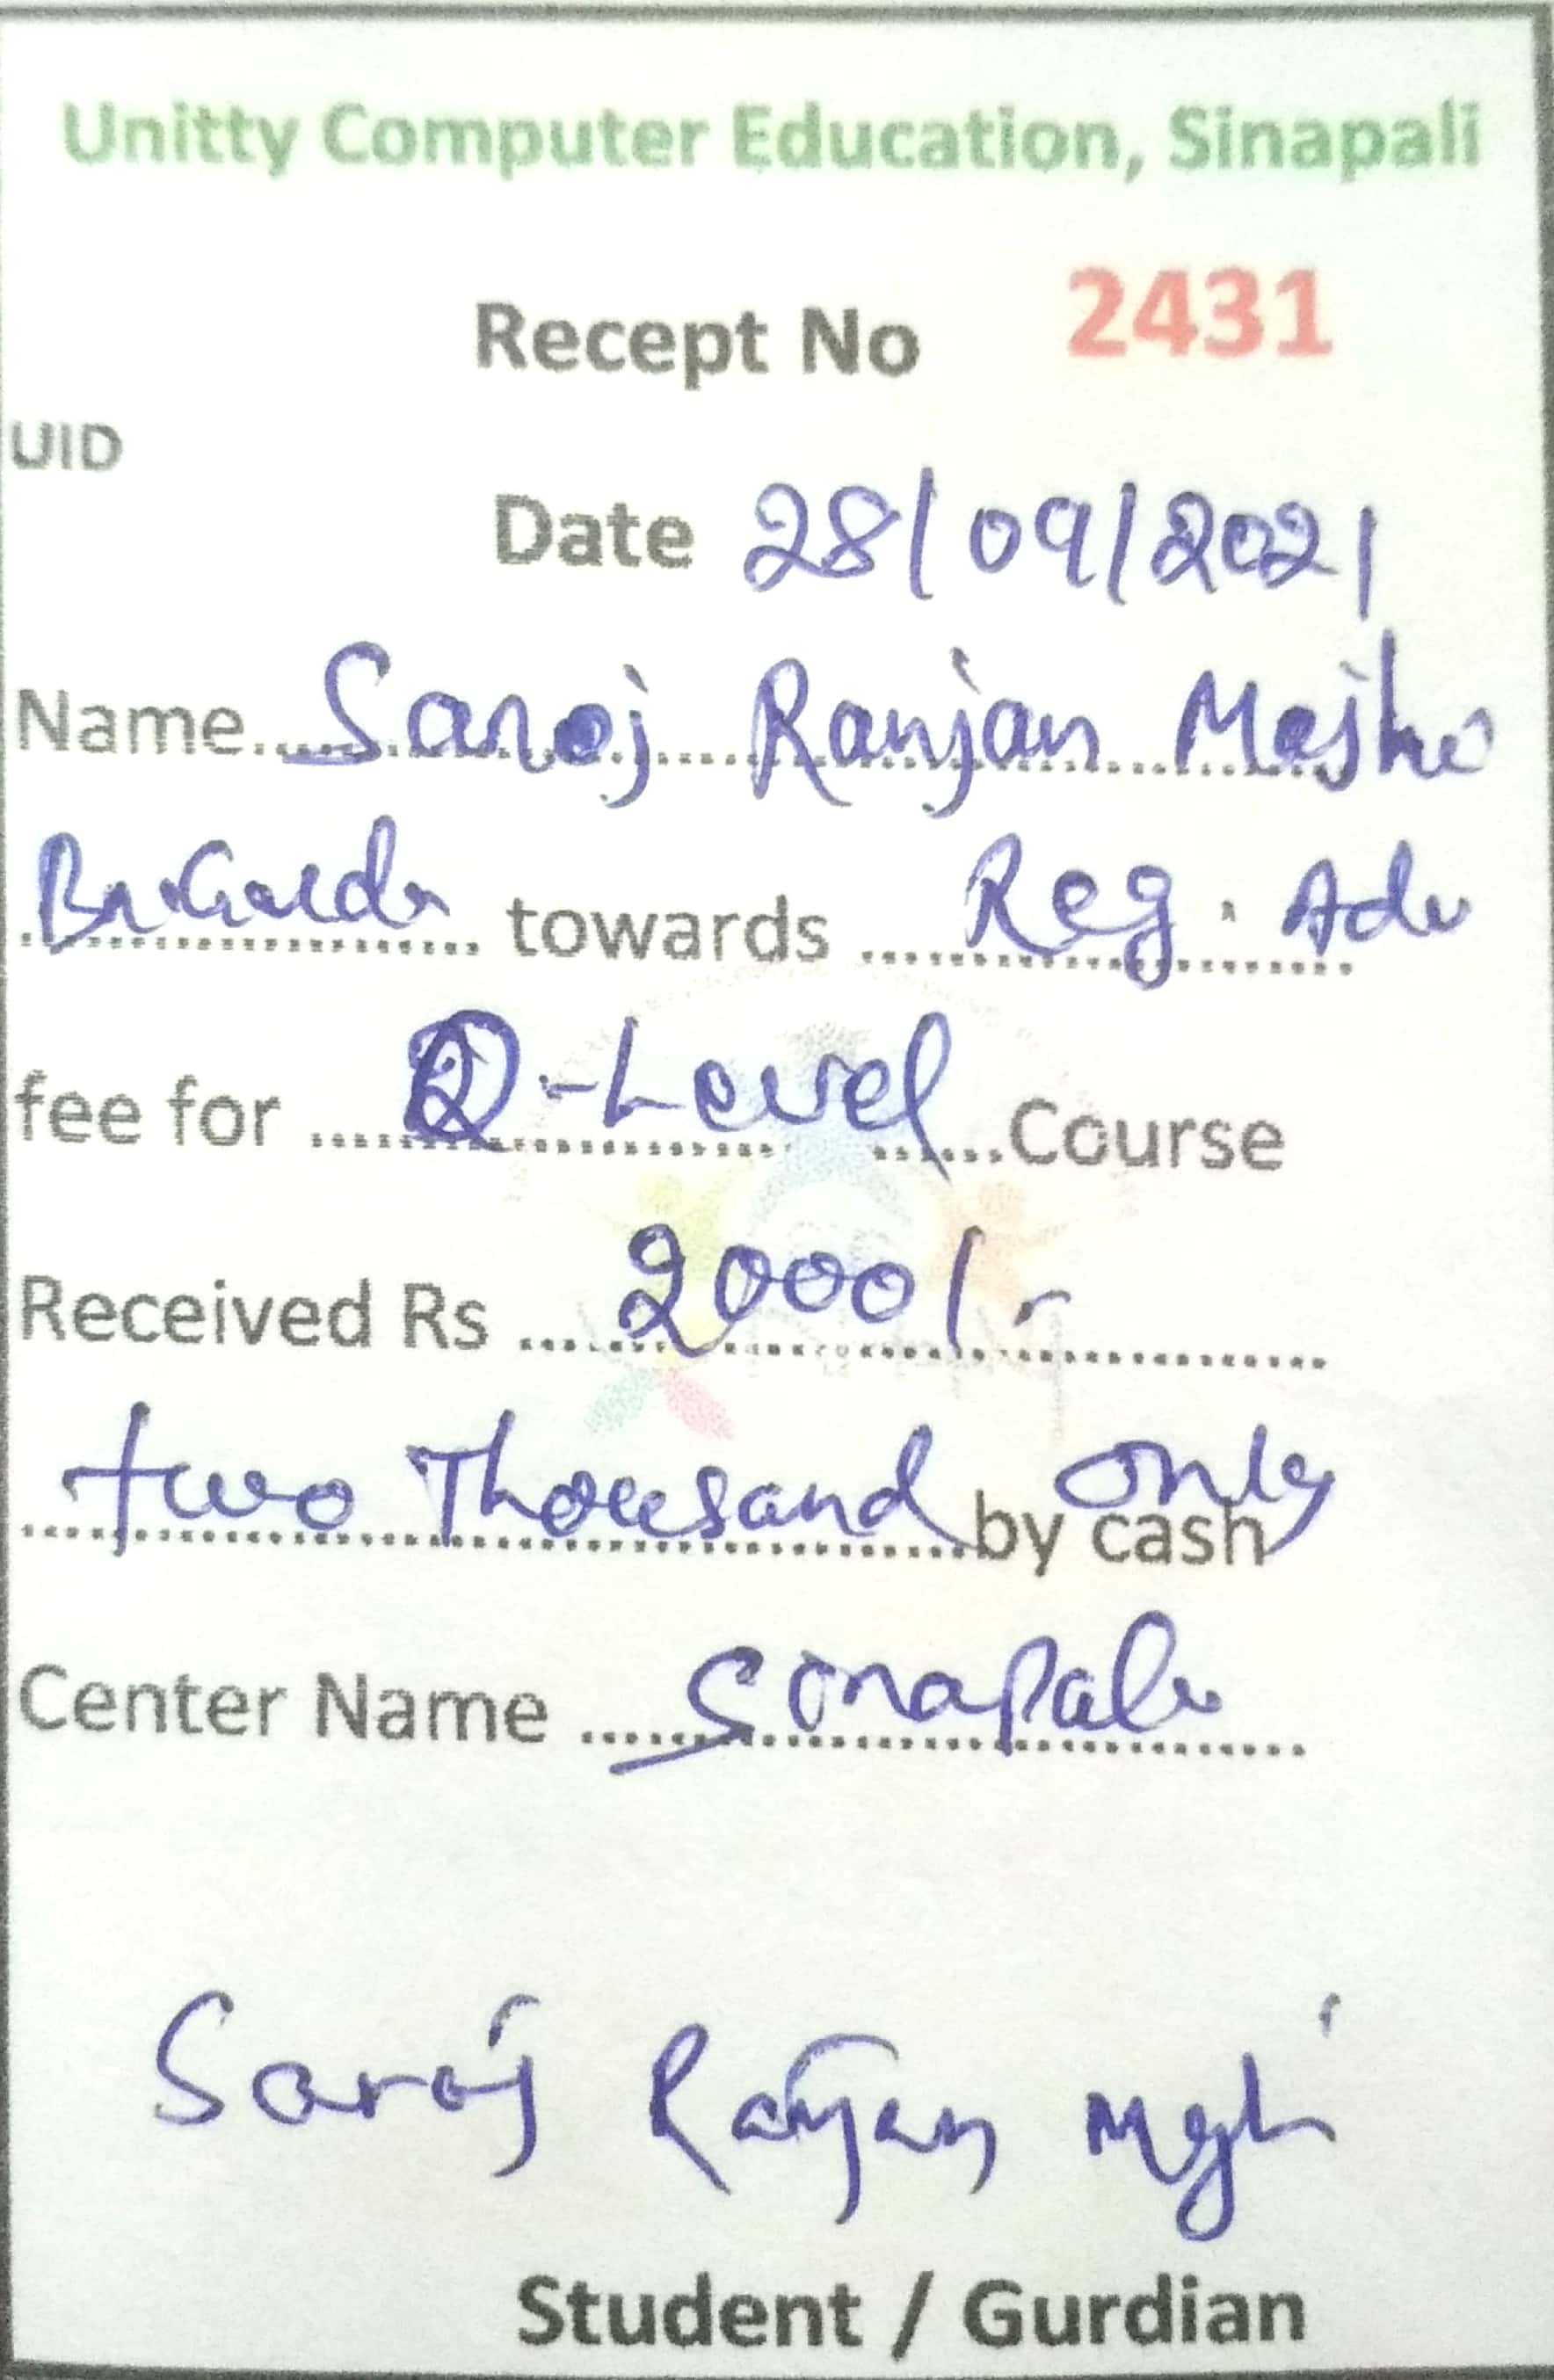 Unitty Computer Education, Sinapali
Recept No 2431
UID
Date 28/09/2021
Name Saroj Ranjan Majhi
towards Reg. Adv
fee for O-Level Course
Received Rs 2000/-
two Thousand only by cash
Center Name Sinapali
Saroj Ranjan Majhi
Student / Gurdian